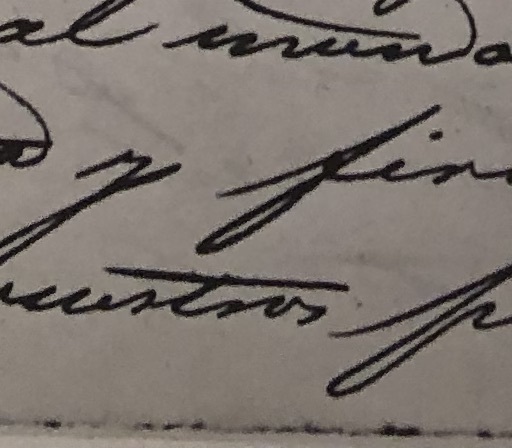 al mundo
y fir
nuestros p